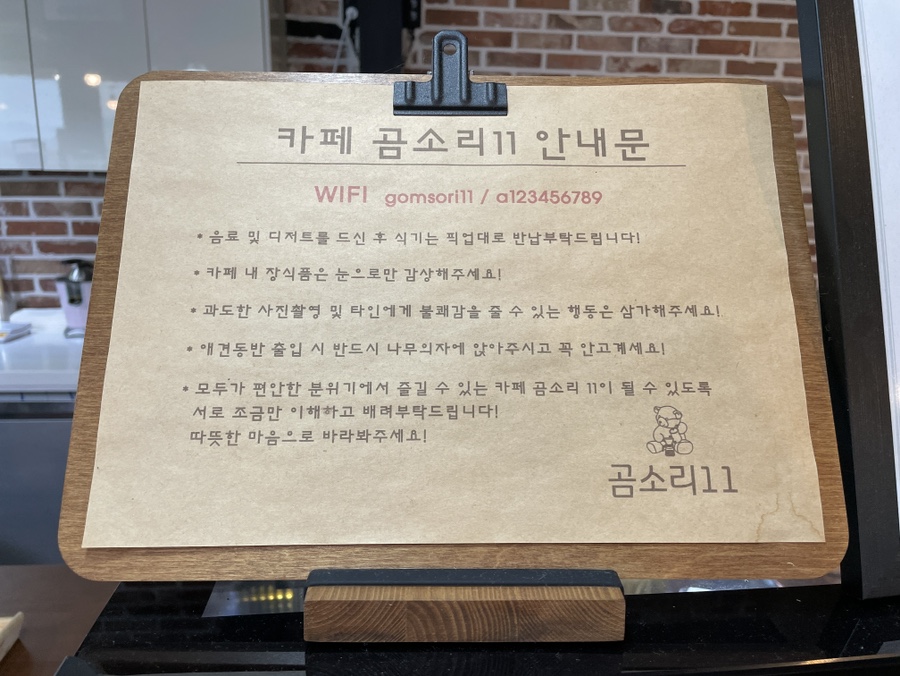 카페 곰소리11 안내문
WIFI gomsori11 / a123456789
* 음료 및 디저트를 드신 후 식기는 픽업대로 반납부탁드립니다!
* 카페 내 장식품은 눈으로만 감상해주세요!
* 과도한 사진촬영 및 타인에게 불쾌감을 줄 수 있는 행동은 삼가해주세요!
* 애견동반 출입 시 반드시 나무의자에 앉아주시고 꼭 안고계세요!
* 모두가 편안한 분위기에서 즐길 수 있는 카페 곰소리 11이 될 수 있도록
서로 조금만 이해하고 배려부탁드립니다!
따뜻한 마음으로 바라봐주세요!
곰소리11